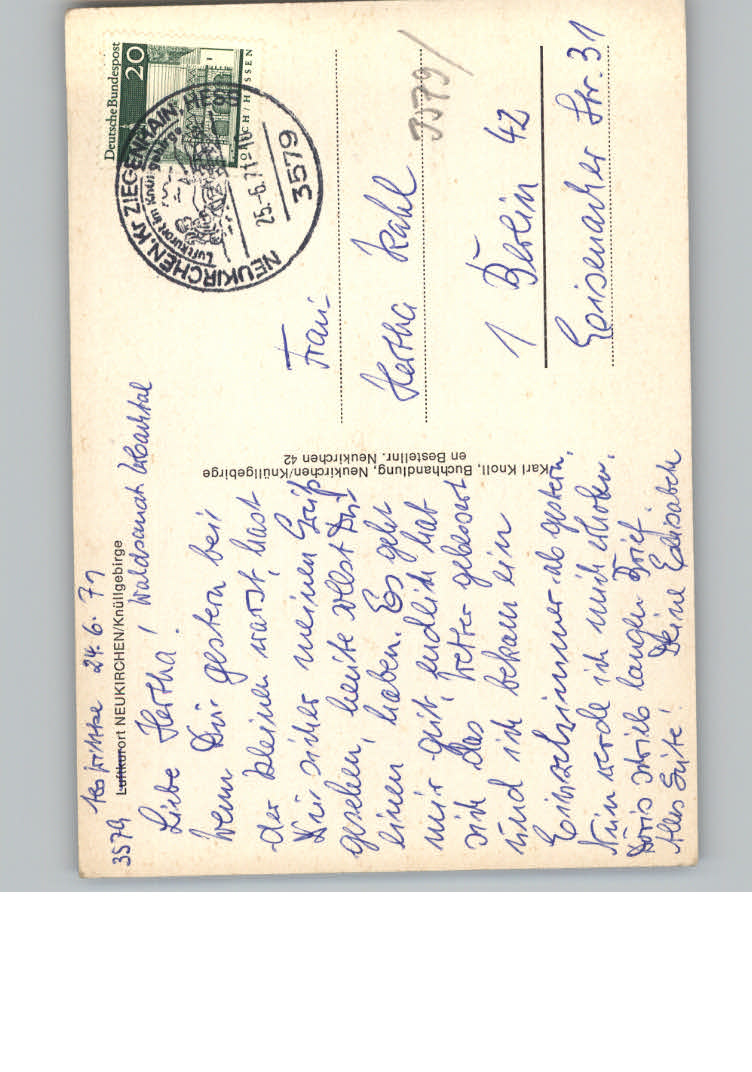 24. 6. 71
3579 Luftkurort NEUKIRCHEN/Knüllgebirge
Liebe Hertha! Waldsanat
Wenn Du gestern bei
der Kleinen warst, hast
Du sicher meinen Gruß
gesehen, heute sollst Du
einen haben. Es geht
mir gut, endlich hat
sich das Wetter gebessert
und ich bekam ein
Einzelzimmer ab gestern.
Nun werde ich mich erholen.
Doris schrieb langen Brief.
Alles Gute! Deine Elisabeth
Karl Knoll, Buchhandlung, Neukirchen/Knüllgebirge
en Bestellnr. Neukirchen 42
Deutsche Bundespost
20
LORSCH / HESSEN
NEUKIRCHEN, Kr ZIEGENHAIN
Luftkurort im Knüllgebirge
25.-6. 71
3579
3579/
Frau
Hertha Kahl
1 Berlin 42
Eisenacher Str. 31